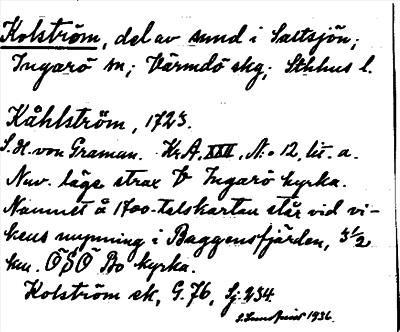 Kolström, del av sund i Saltsjön;
Ingarö sn; Värmdö skg; Sthlms l.
Kåhlström, 1723.
S.H. von Graman. Kr.A. XXII, N:o 12, lit. a.
Nuv. läge strax V Ingarö kyrka.
Namnet å 1700-talskartan står vid vi-
kens mynning i Baggensfjärden, 3 1/2
km. ÖSÖ Bo kyrka.
Kolström ek, G.76, Sj.234.
1936.